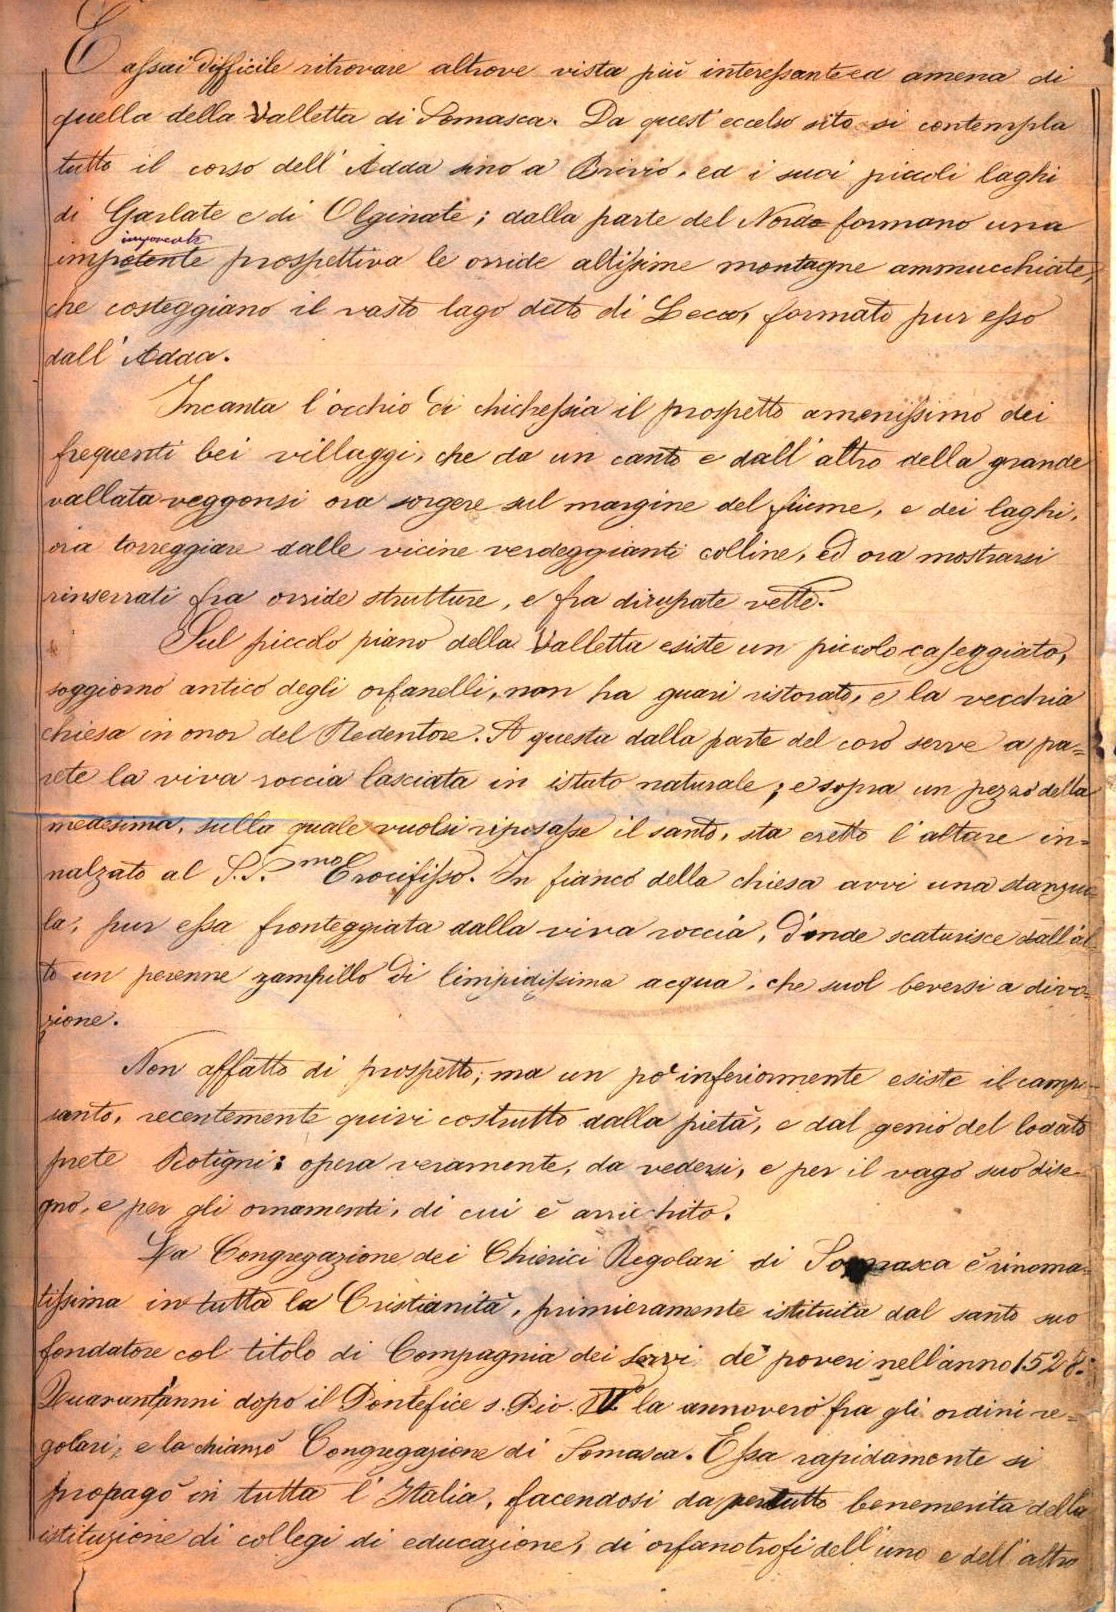 E assai difficile ritrovare altrove vista più interessante ed amena di
quella della Valletta di Somasca. Da quest'eccelso sito si contempla
tutto il corso dell'Adda sino a Brivio, ed i suoi piccoli laghi
di Garlate e di Olginate; dalla parte del Nord formano una
imponente
prospettiva le orride altissime montagne ammucchiate,
che costeggiano il vasto lago detto di Lecco, formato pur esso
dall'Adda.
Incanta l'occhio di chichessia il prospetto amenissimo dei
frequenti bei villaggi, che da un canto e dall'altro della grande
vallata veggonsi ora sorgere sul margine del fiume, e dei laghi,
ora torreggiare dalle vicine verdeggianti colline, ed ora mostrarsi
rinserrati fra orride strutture, e fra dirupate vette.
Sul piccolo piano della Valletta esiste un piccolo caseggiato,
soggiorno antico degli orfanelli, non ha guari ristorato, e la vecchia
chiesa in onor del Redentore. A questa dalla parte del coro serve a pa=
rete la viva roccia lasciata in istato naturale; e sopra un pezzo della
medesima, sulla quale vuolsi riposasse il santo, sta eretto l'altare in=
nalzato al S.S.mo Crocifisso. In fianco della chiesa avvi una stanzuo=
la, pur essa fronteggiata dalla viva roccia, d'onde scaturisce dall'al=
to un perenne zampillo di limpidissima acqua, che suol beversi a divo=
zione.
Non affatto di prospetto, ma un po' inferiormente esiste il campo=
santo, recentemente quivi costrutto dalla pietà, e dal genio del lodato
prete Rotigni: opera veramente, da vedersi, e per il vago suo dise=
gno, e per gli ornamenti, di cui è arricchito.
La Congregazione dei Chierici Regolari di Somasca è rinoma=
tissima in tutta la Cristianità, primieramente istituita dal santo suo
fondatore col titolo di Compagnia dei servi de' poveri nell'anno 1528.
Quarant'anni dopo il Pontefice s. Pio V.° la annoverò fra gli ordini re=
golari, e la chiamò Congregazione di Somasca. Essa rapidamente si
propagò in tutta l'Italia, facendosi da pertutto benemerita della
istituzione di collegi di educazione, di orfanotrofi dell'uno e dell'altro